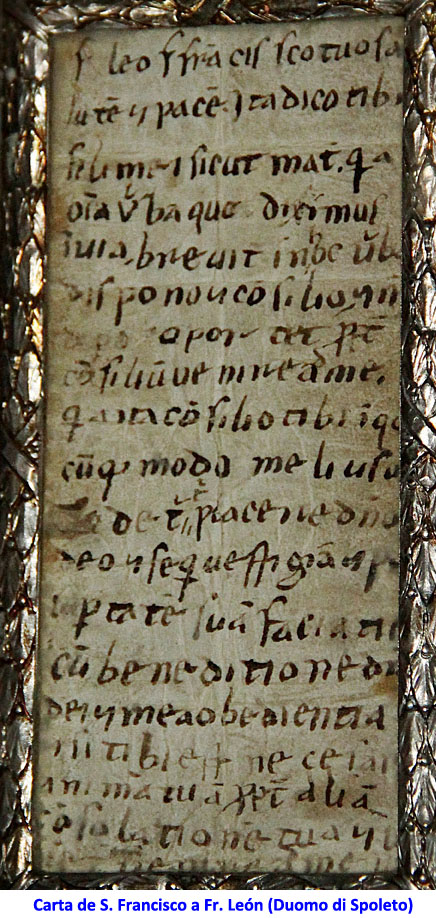 f leo f francissco tuo sa
lutē ⁊ pacē. Ita dico tibi
fili mei sicut mat̄. q̄a
oīa v̄ba que diximus
ī via. breuit̄ in hoc v̄ba
dispono ⁊ cōsilio ⁊
oportet ꝓpt̄
cōsiliū venire ad me.
q̄a ita cōsilio tibi ī q̄
cūq̄ modo melius
uidet̄ t̄ placere dn̄o
deo ⁊ seq̄ ueſtigiā ⁊ p
uptatē suā faciatis
cū beneditione dn̄i
dei ⁊ mea obedientia
si tibi eſt necesari
animā tuā ꝓpt̄ aliā
cōsolationē tuā ⁊
venire ad me
Carta de S. Francisco a Fr. León (Duomo di Spoleto)